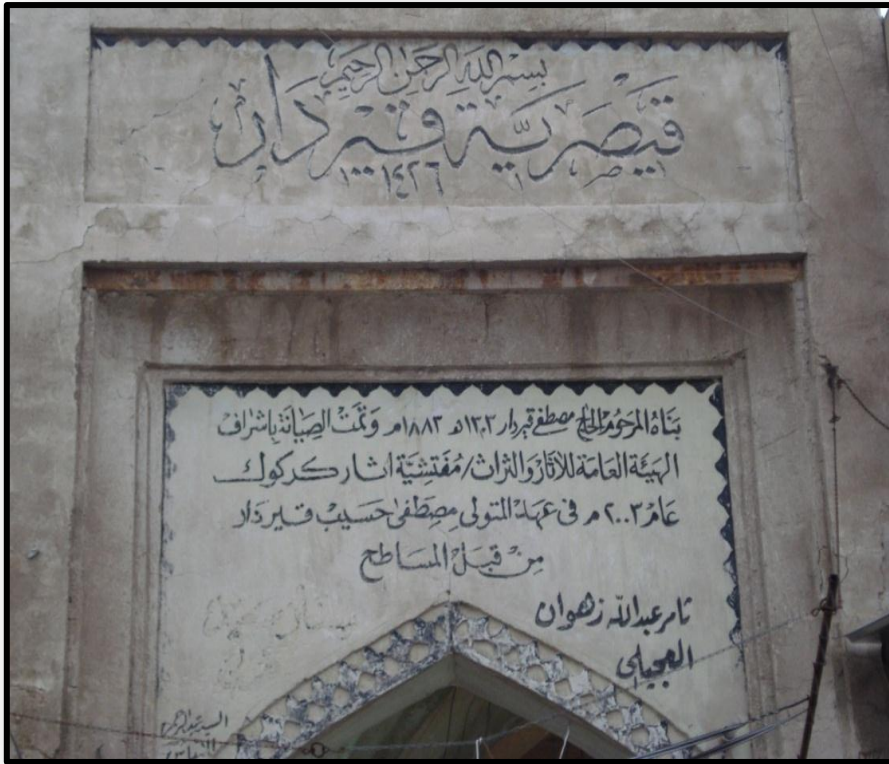 بسم الله الرحمن الرحيم
قيصرية قيردار
١٤٢٦
بناه المرحوم الحاج مصطفى قيردار ١٣٠٣هـ ١٨٨٣م وتمت الصيانة باشراف
الهيئة العامة للآثار والتراث/مفتشية اثار كركوك
عام ٢٠٠٣م في عهد المتولي مصطفى حسيب قيردار
من قبل المساطح
ثامر عبدالله زهوان
العجيلي